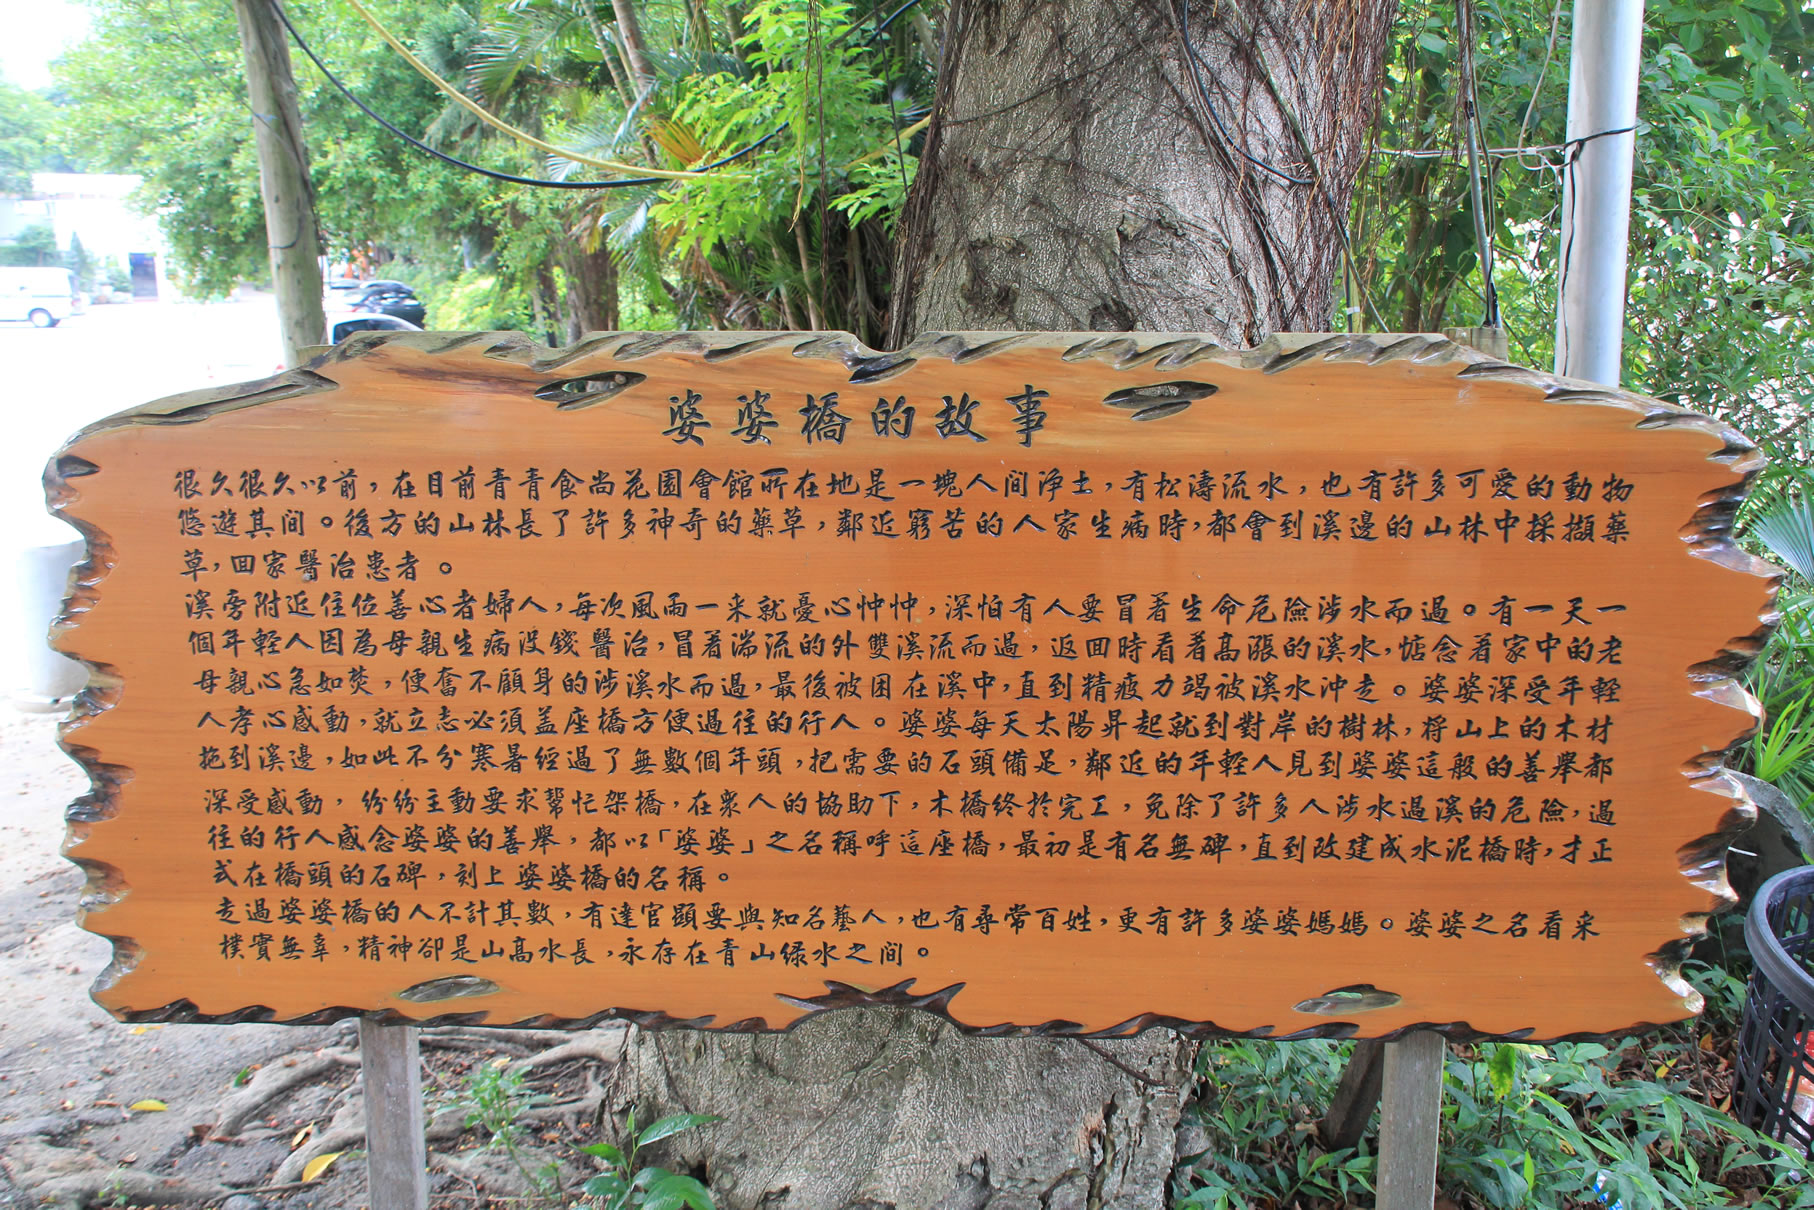 婆婆橋的故事
很久很久以前，在目前青青食尚花園會館所在地是一塊人間淨土，有松濤流水，也有許多可愛的動物
悠遊其間。後方的山林長了許多神奇的藥草，鄰近窮苦的人家生病時，都會到溪邊的山林中採擷藥
草，回家醫治患者。
溪旁附近住位善心老婦人，每次風雨一來就憂心忡忡，深怕有人要冒著生命危險涉水而過。有一天一
個年輕人因為母親生病沒錢醫治，冒著湍流的外雙溪流而過，返回時看著高漲的溪水，惦念着家中的老
母親心急如焚，便奮不顧身的涉溪水而過，最後被困在溪中，直到精疲力竭被溪水沖走。婆婆深受年輕
人孝心感動，就立志必須蓋座橋方便過往的行人。婆婆每天太陽昇起就到對岸的樹林，將山上的木材
拖到溪邊，如此不分寒暑經過了無數個年頭，把需要的石頭備足，鄰近的年輕人見到婆婆這般的善舉都
深受感動，紛紛主動要求幫忙架橋，在眾人的協助下，木橋終於完工，免除了許多人涉水過溪的危險，過
往的行人感念婆婆的善舉，都以「婆婆」之名稱呼這座橋，最初是有名無碑，直到改建成水泥橋時，才正
式在橋頭的石碑，刻上婆婆橋的名稱。
走過婆婆橋的人不計其數，有達官顯要與知名藝人，也有尋常百姓，更有許多婆婆媽媽。婆婆之名看來
樸實無華，精神卻是山高水長，永存在青山綠水之間。